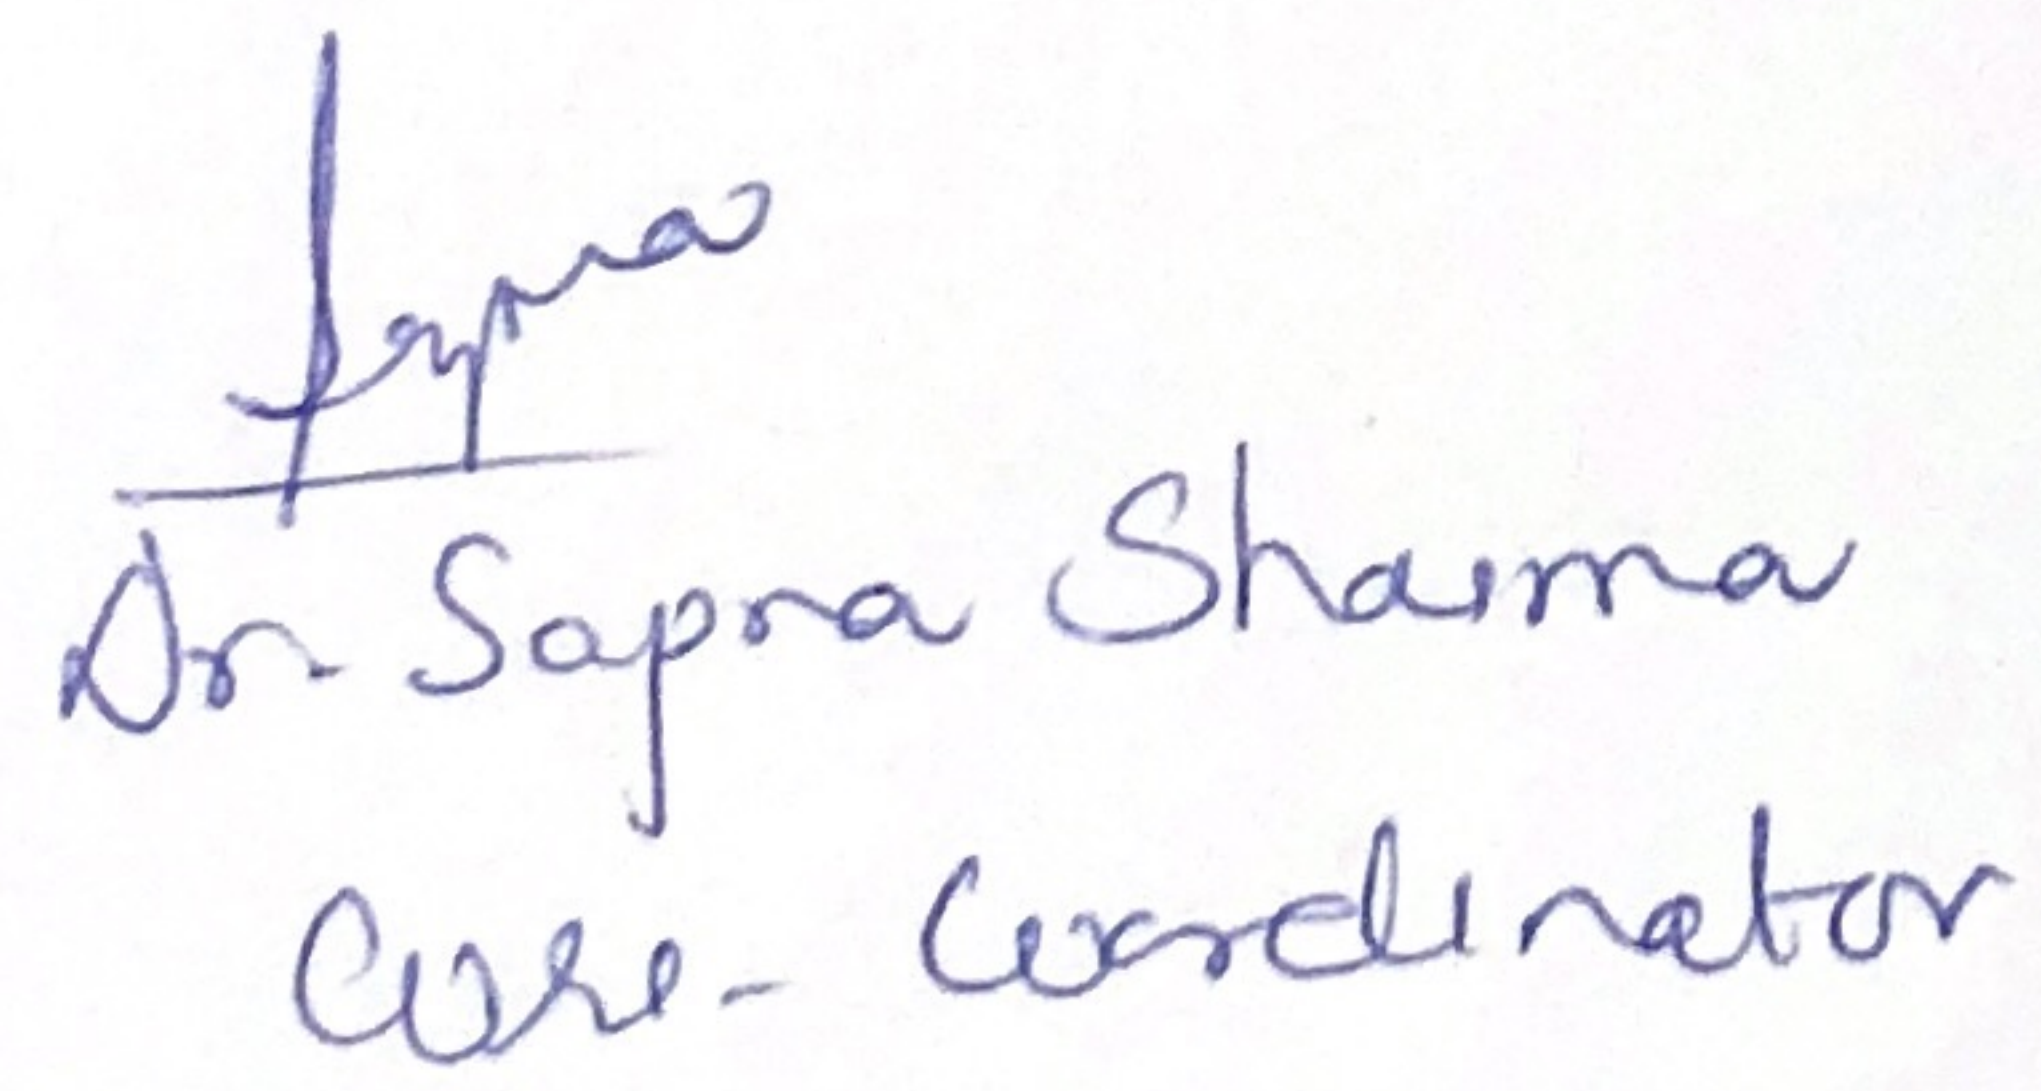 Sapna
Dr. Sapna Sharma
Core-Coordinator